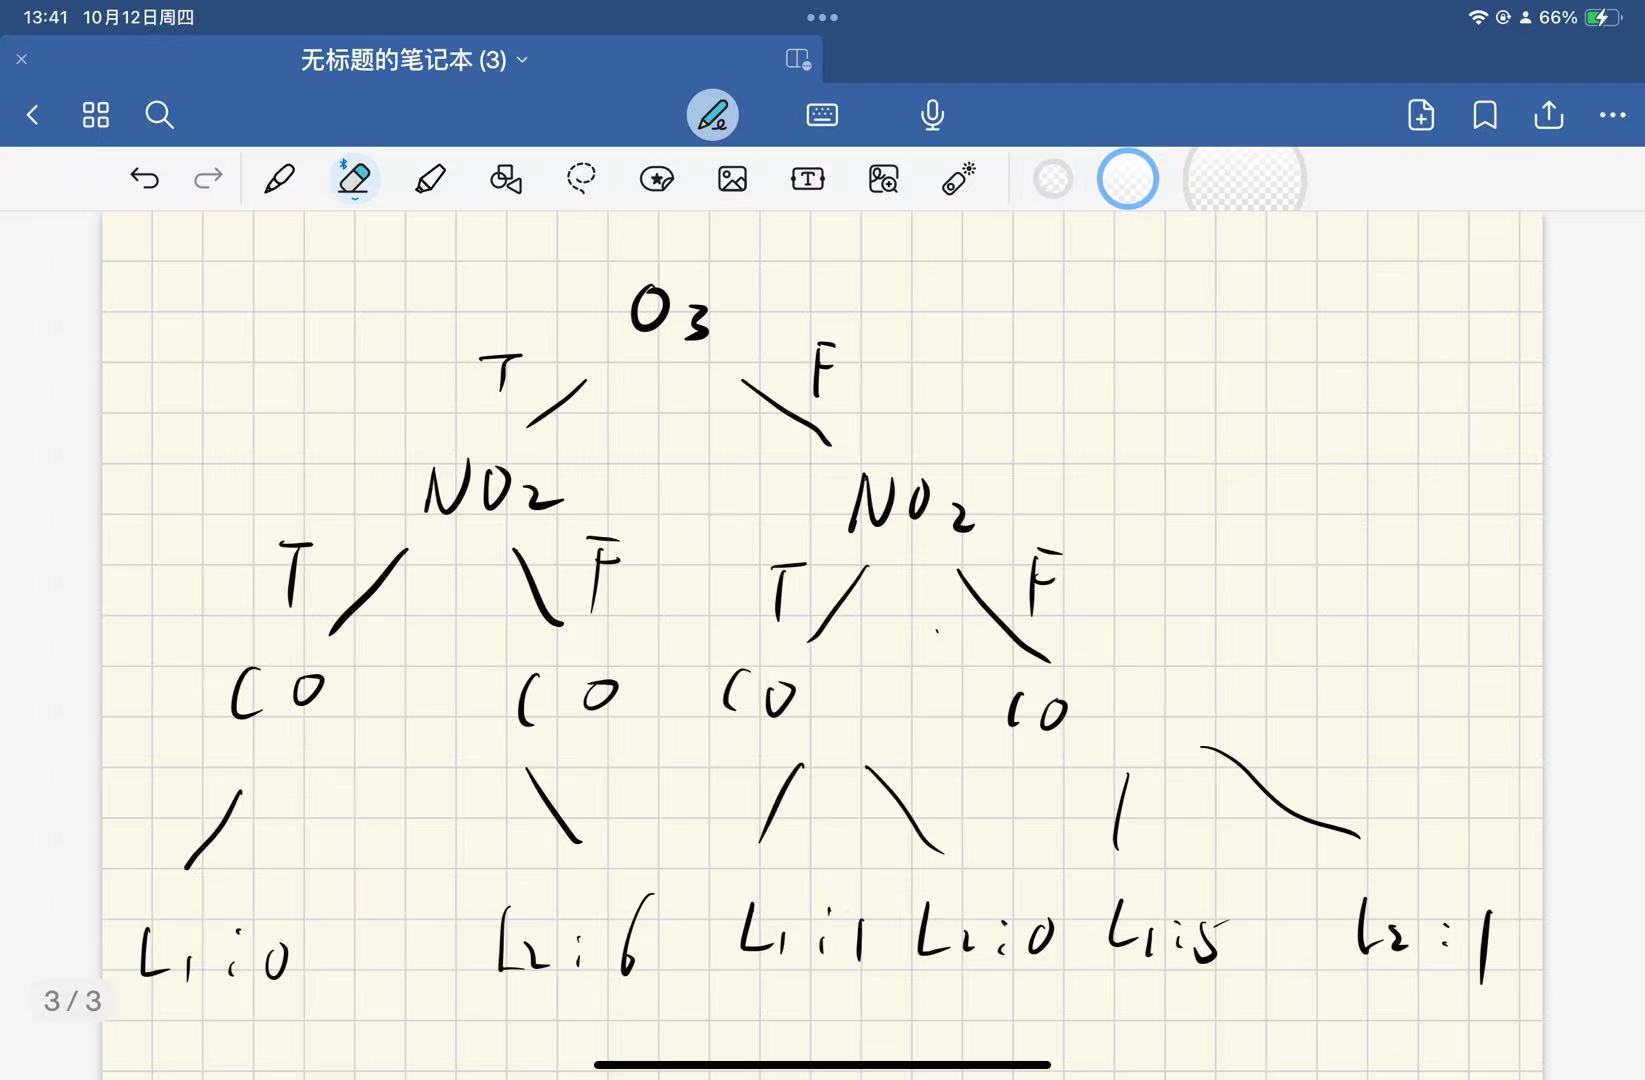 13:41 10月12日周四
66%
无标题的笔记本 (3)
O3
T F
NO2 NO2
T F T F
CO CO CO CO
L1:0 L2:6 L1:1 L2:0 L1:5 L2:1
3 / 3